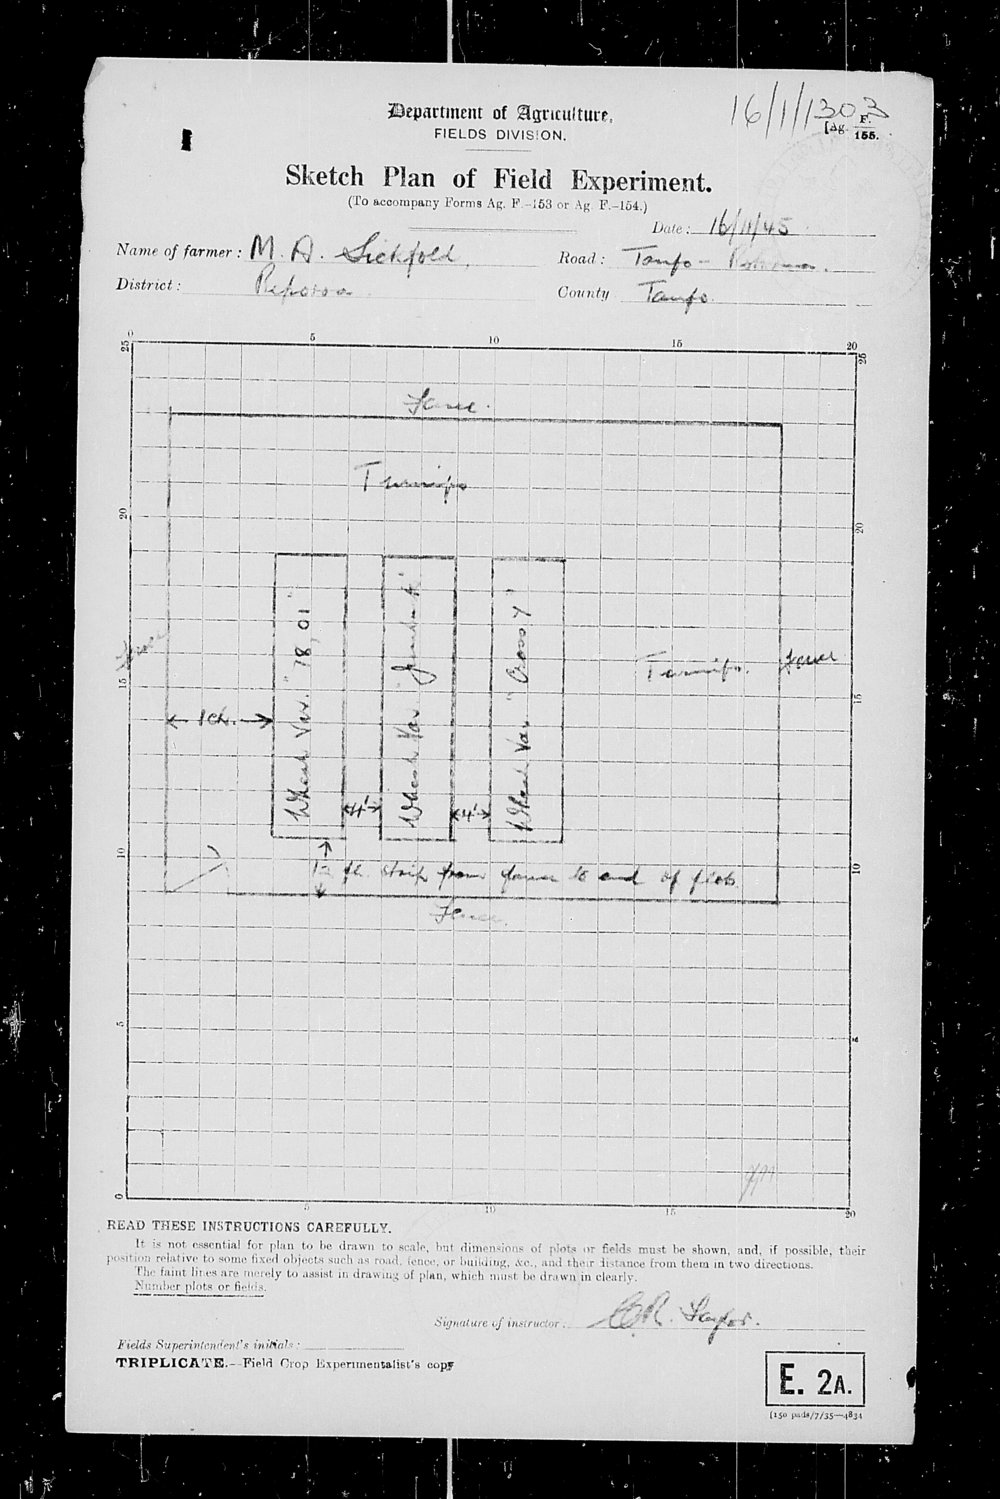 16/1/1303
Department of Agriculture,
FIELDS DIVISION.
[Ag. F. 155.
Sketch Plan of Field Experiment.
(To accompany Forms Ag. F.-153 or Ag F.-154.)
Date: 16/11/45
Name of farmer: M. A. Sickfold,
Road: Taupo -
District: Reporoa
County Taupo.
0 5 10 15 20
25 25
Fence.
Turnips
20 20
Wheat Var. "78,01"
Wheat Var
Wheat Var "Cross 7"
Fence
Turnips.
Fence
15 15
1 ch.
4' 4'
10 10
ft. strip from fence to end of plots.
Fence.
5 5
0 5 10 15 20
READ THESE INSTRUCTIONS CAREFULLY.
It is not essential for plan to be drawn to scale, but dimensions of plots or fields must be shown, and, if possible, their
position relative to some fixed objects such as road, fence, or building, &c., and their distance from them in two directions.
The faint lines are merely to assist in drawing of plan, which must be drawn in clearly.
Number plots or fields.
Signature of instructor: C.R. Taylor.
Fields Superintendent's initials:
TRIPLICATE.--Field Crop Experimentalist's copy
E. 2A.
[150 pads/7/35—4834